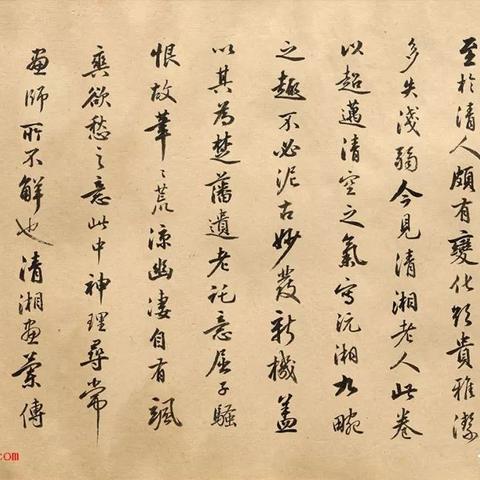 至於清人頗有變化雖貴雅潔
多失淺弱今見清湘老人此卷
以超邁清空之氣寫沅湘九畹
之趣不必泥古妙發新機蓋
以其為楚藩遺老託意屈子騷
恨故筆〻荒涼幽淒自有颯
爽欲愁之意此中神理尋常
畫師所不解也清湘畫蘭傳
.com